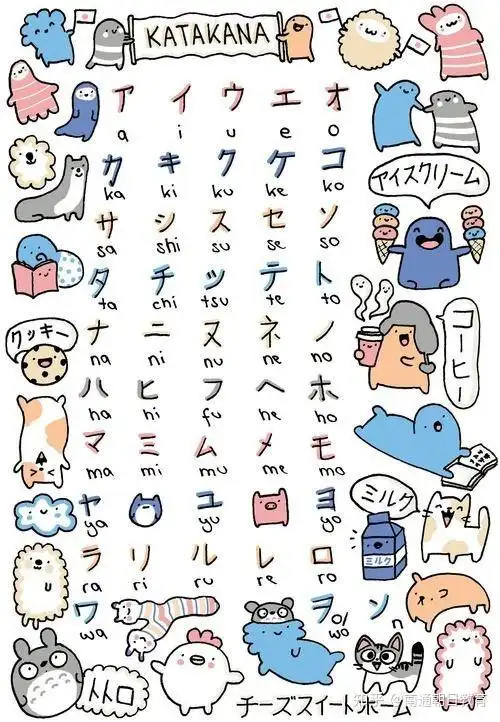 KATAKANA
ア イ ウ エ オ
a i u e o
カ キ ク ケ コ
ka ki ku ke ko
アイスクリーム
サ シ ス セ ソ
sa shi su se so
タ チ ッ テ ト
ta chi tsu te to
クッキー
コーヒー
ナ ニ ヌ ネ ノ
na ni nu ne no
ハ ヒ フ ヘ ホ
ha hi fu he ho
マ ミ ム メ モ
ma mi mu me mo
ミルク
ヤ ユ ヨ
ya yu yo
ミルク
ラ リ ル レ ロ
ra ri ru re ro
ワ ヲ ン
wa o/wo n
トトロ
チーズスイートホーム
知乎 @南通朝日教育